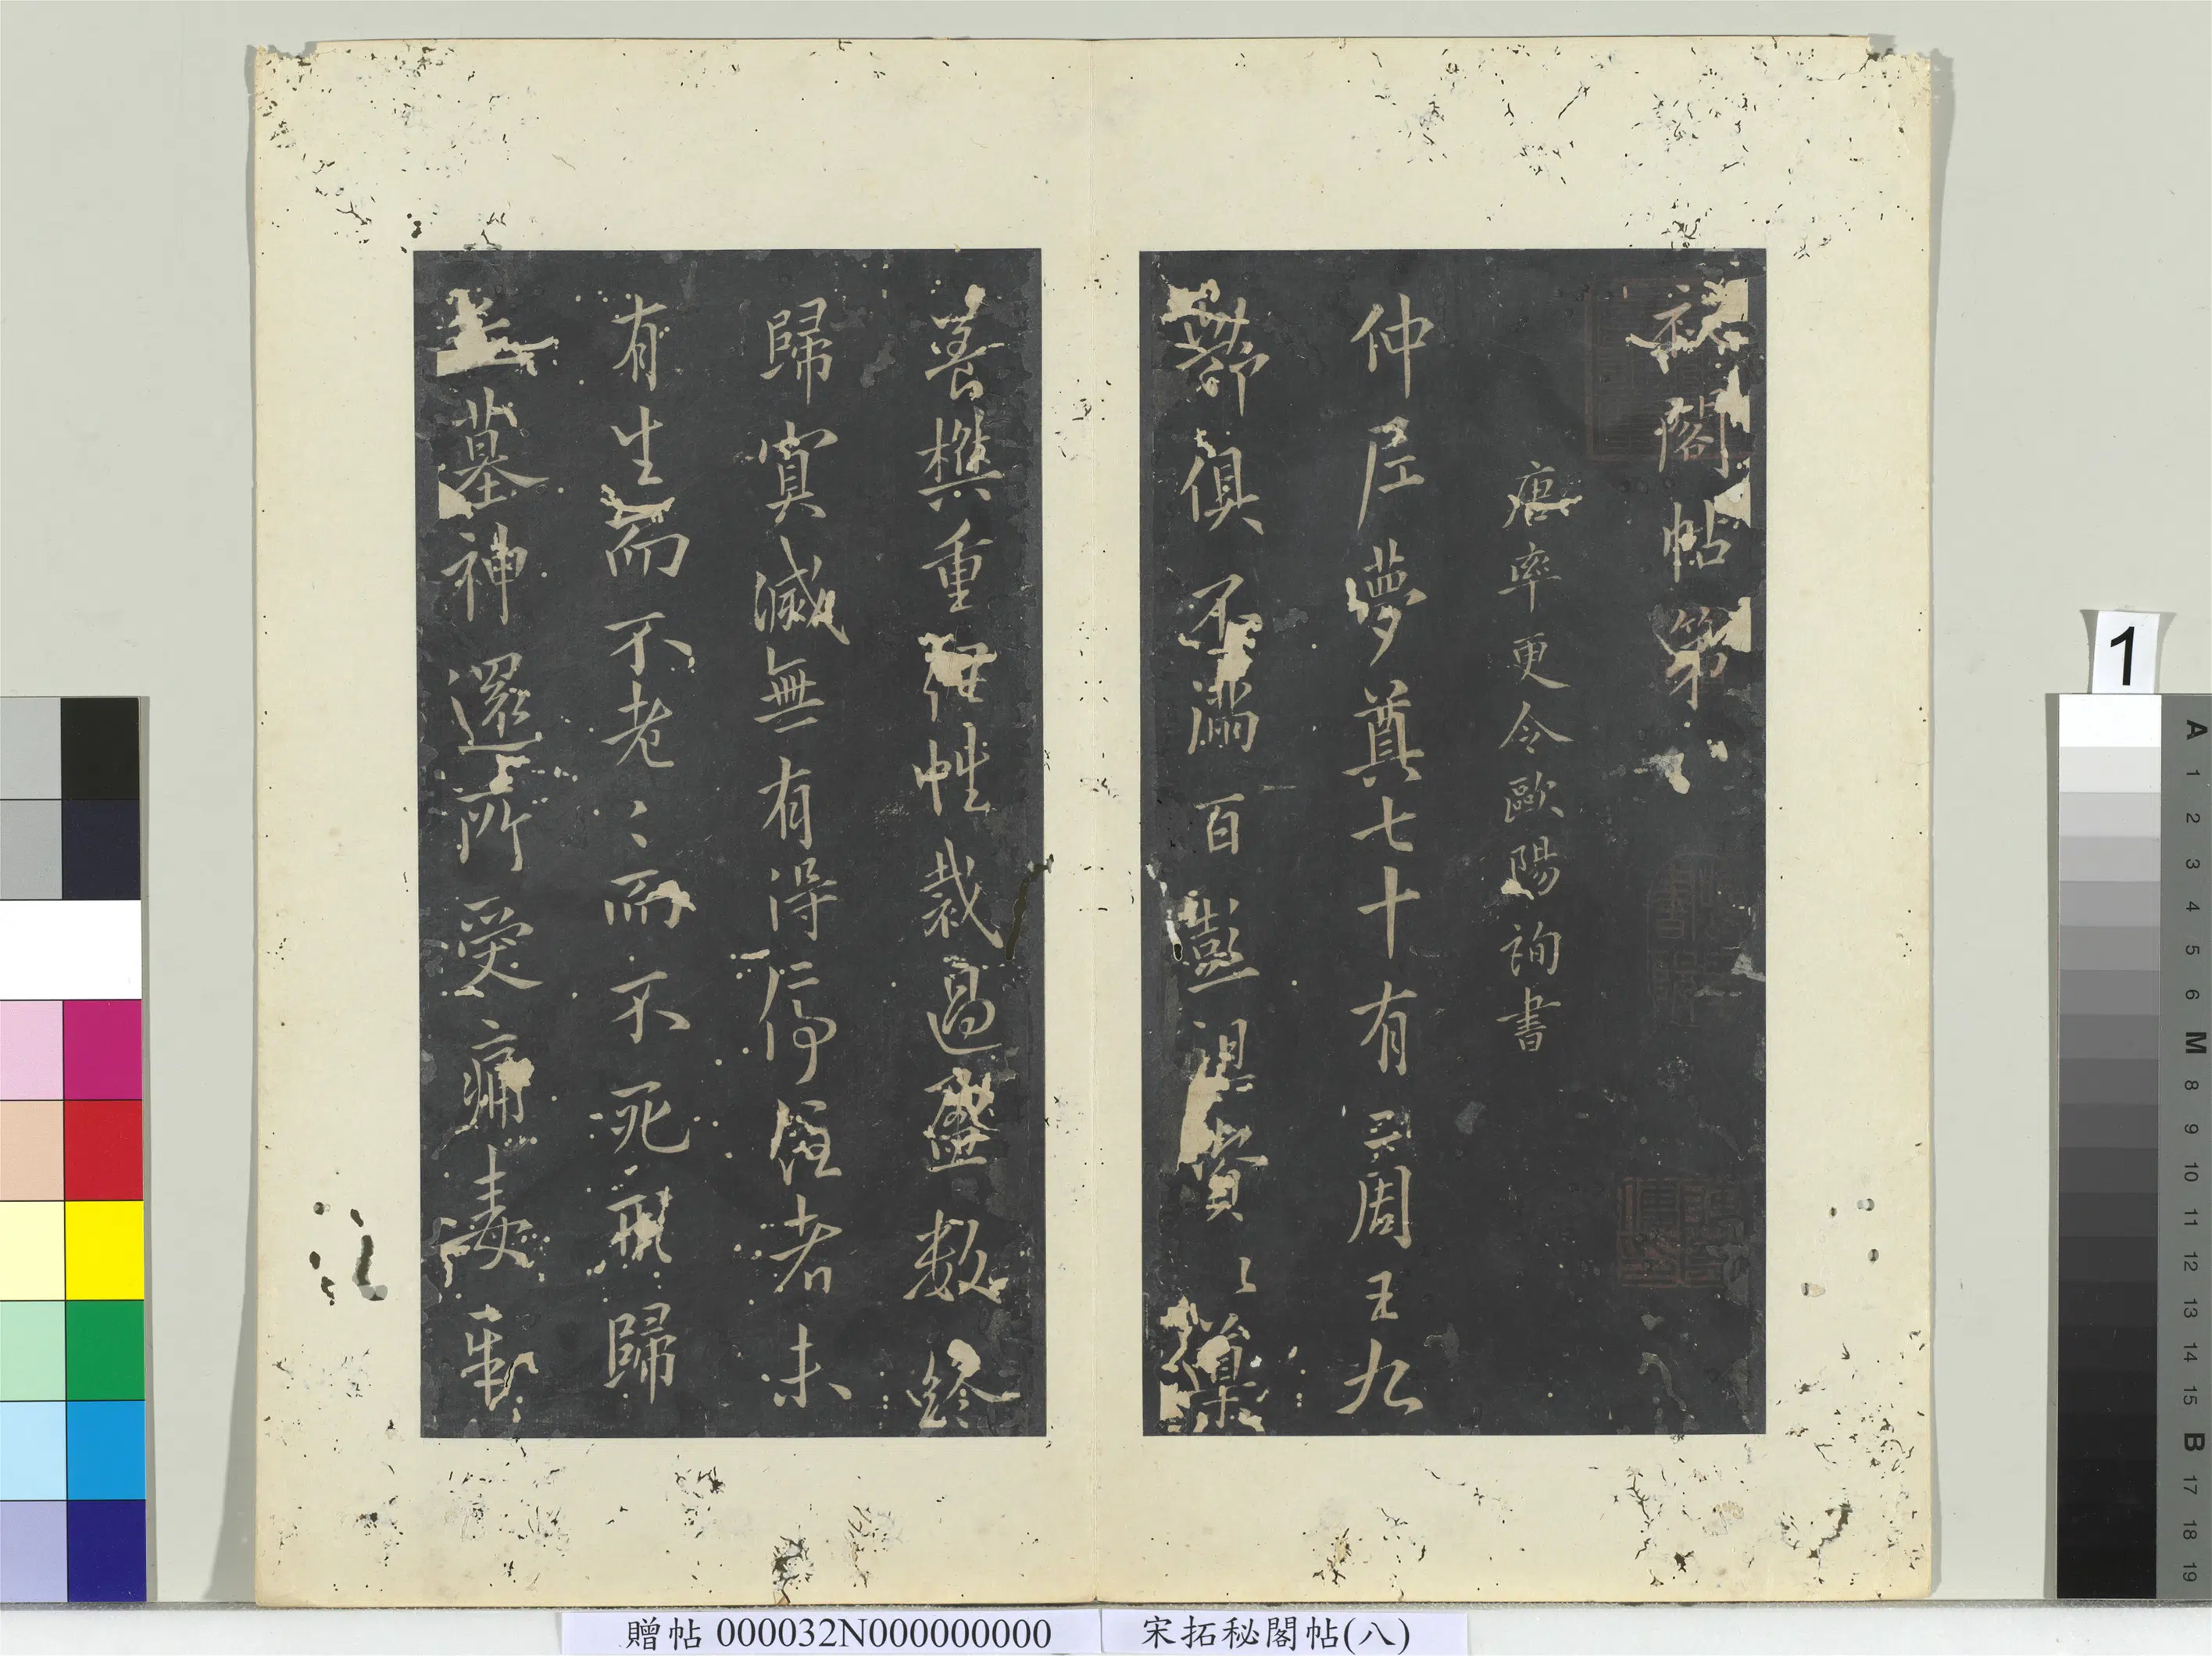 秘閣帖第
唐率更令歐陽詢書
仲尼夢奠七十有二周王九
齡俱不滿百彭祖資以導
養樊重任性裁過盈數終
歸冥滅無有得停住者未
有生而不老〻而不死形歸
丘墓神還所受痛毒辛
贈帖 000032N000000000
宋拓秘閣帖(八)
1
A
1
2
3
4
5
6
M
8
9
10
11
12
13
14
15
B
17
18
19